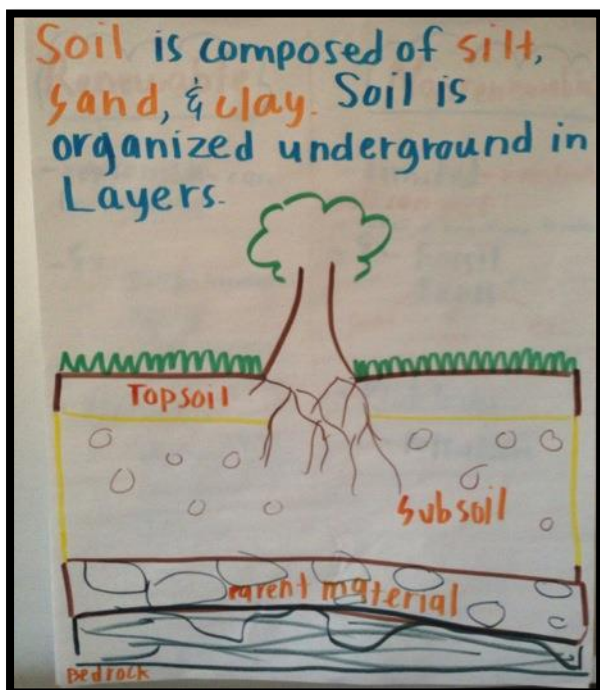 Soil is composed of silt,
sand, & clay. Soil is
organized underground in
Layers.
Topsoil
Subsoil
Parent material
Bedrock